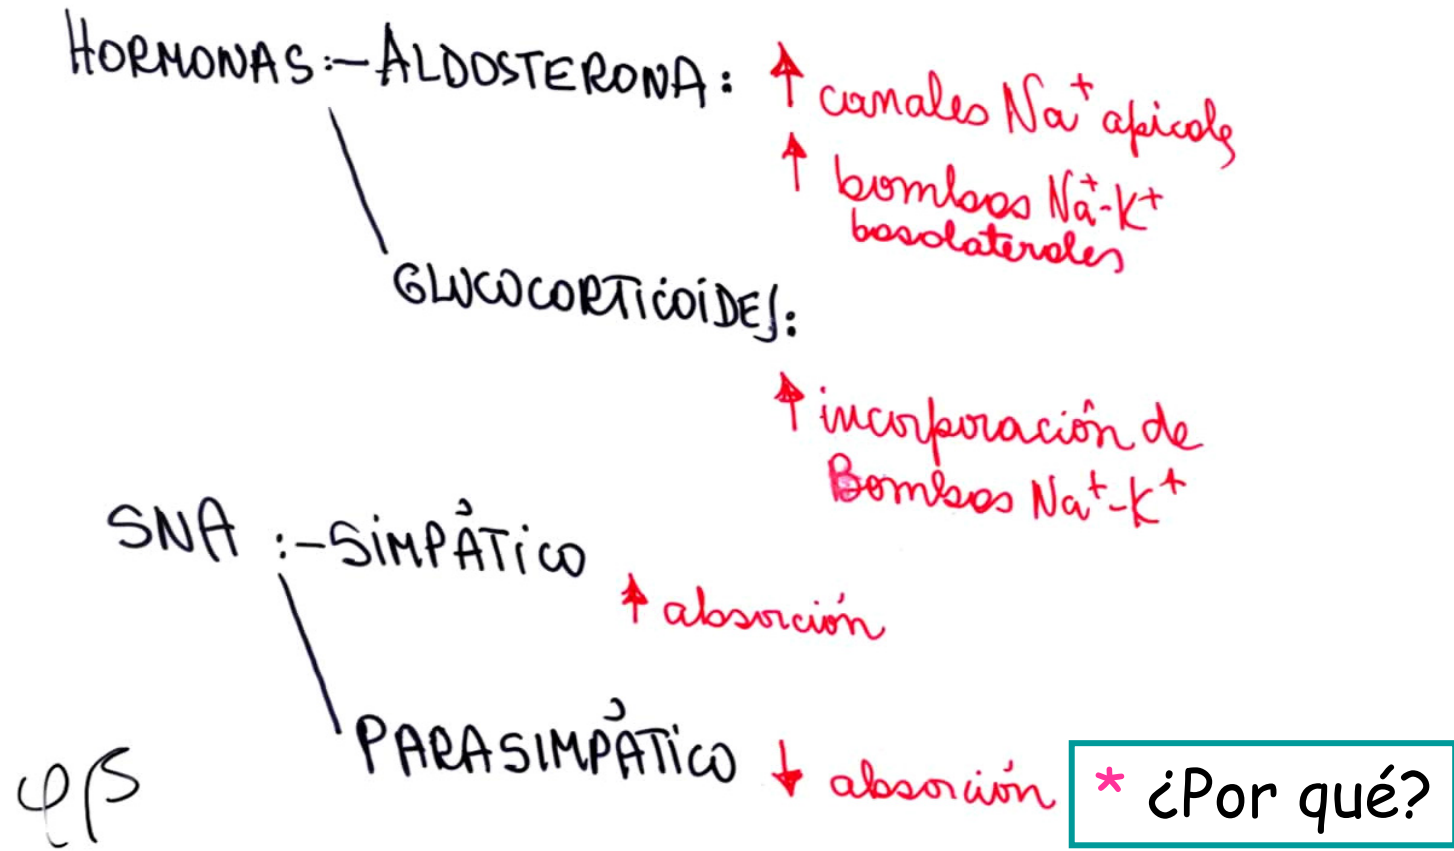 HORMONAS:- ALDOSTERONA: ↑ canales Na⁺ apicales
↑ bombas Na⁺-K⁺
basolaterales
GLUCOCORTICOIDES:
↑ incorporación de
Bombas Na⁺-K⁺
SNA :- SIMPÁTICO
↑ absorción
PARASIMPÁTICO ↓ absorción * ¿Por qué?